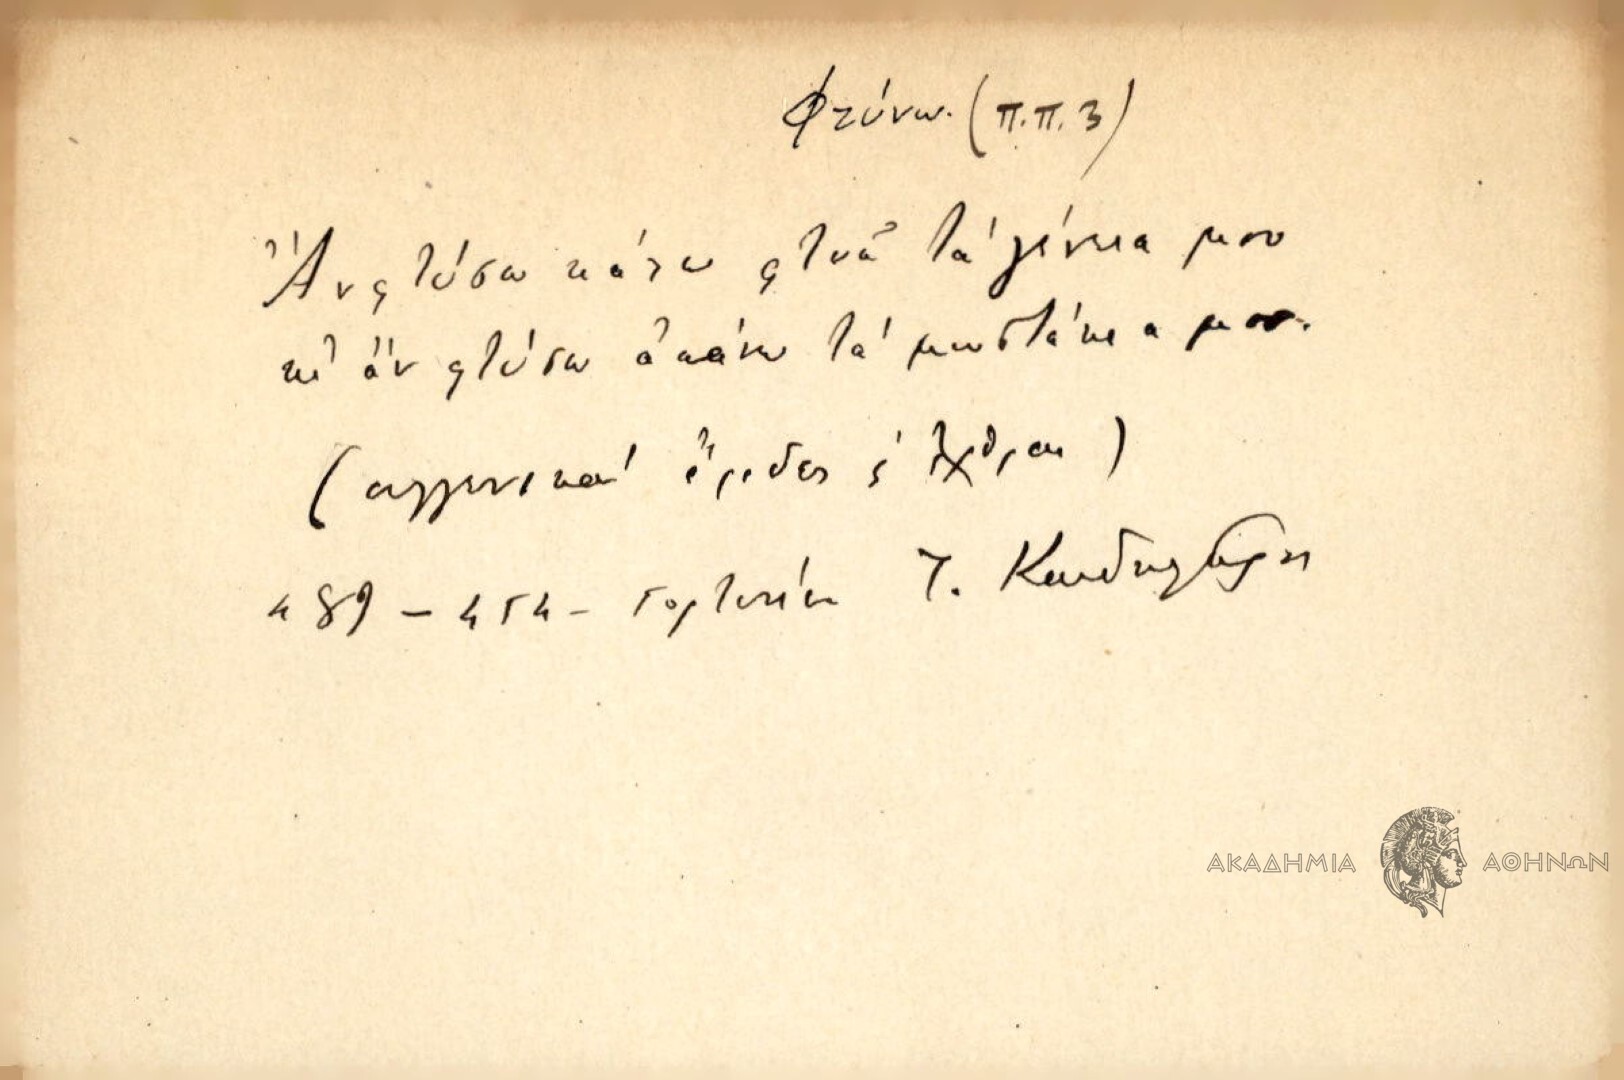 Φτύνω. (π.π. 3)
Ἂν φτύσω κάτω φτυῶ τὰ γένεια μου
κι ἂν φτύσω ἀπάνω τὰ μουστάκια μου.
(συγγενικαὶ ἔριδες ἢ ἔχθραι)
489 – 454 – Γορτυνία Τ. Κανδηλώρη
ΑΚΑΔΗΜΙΑ ΑΘΗΝΩΝ